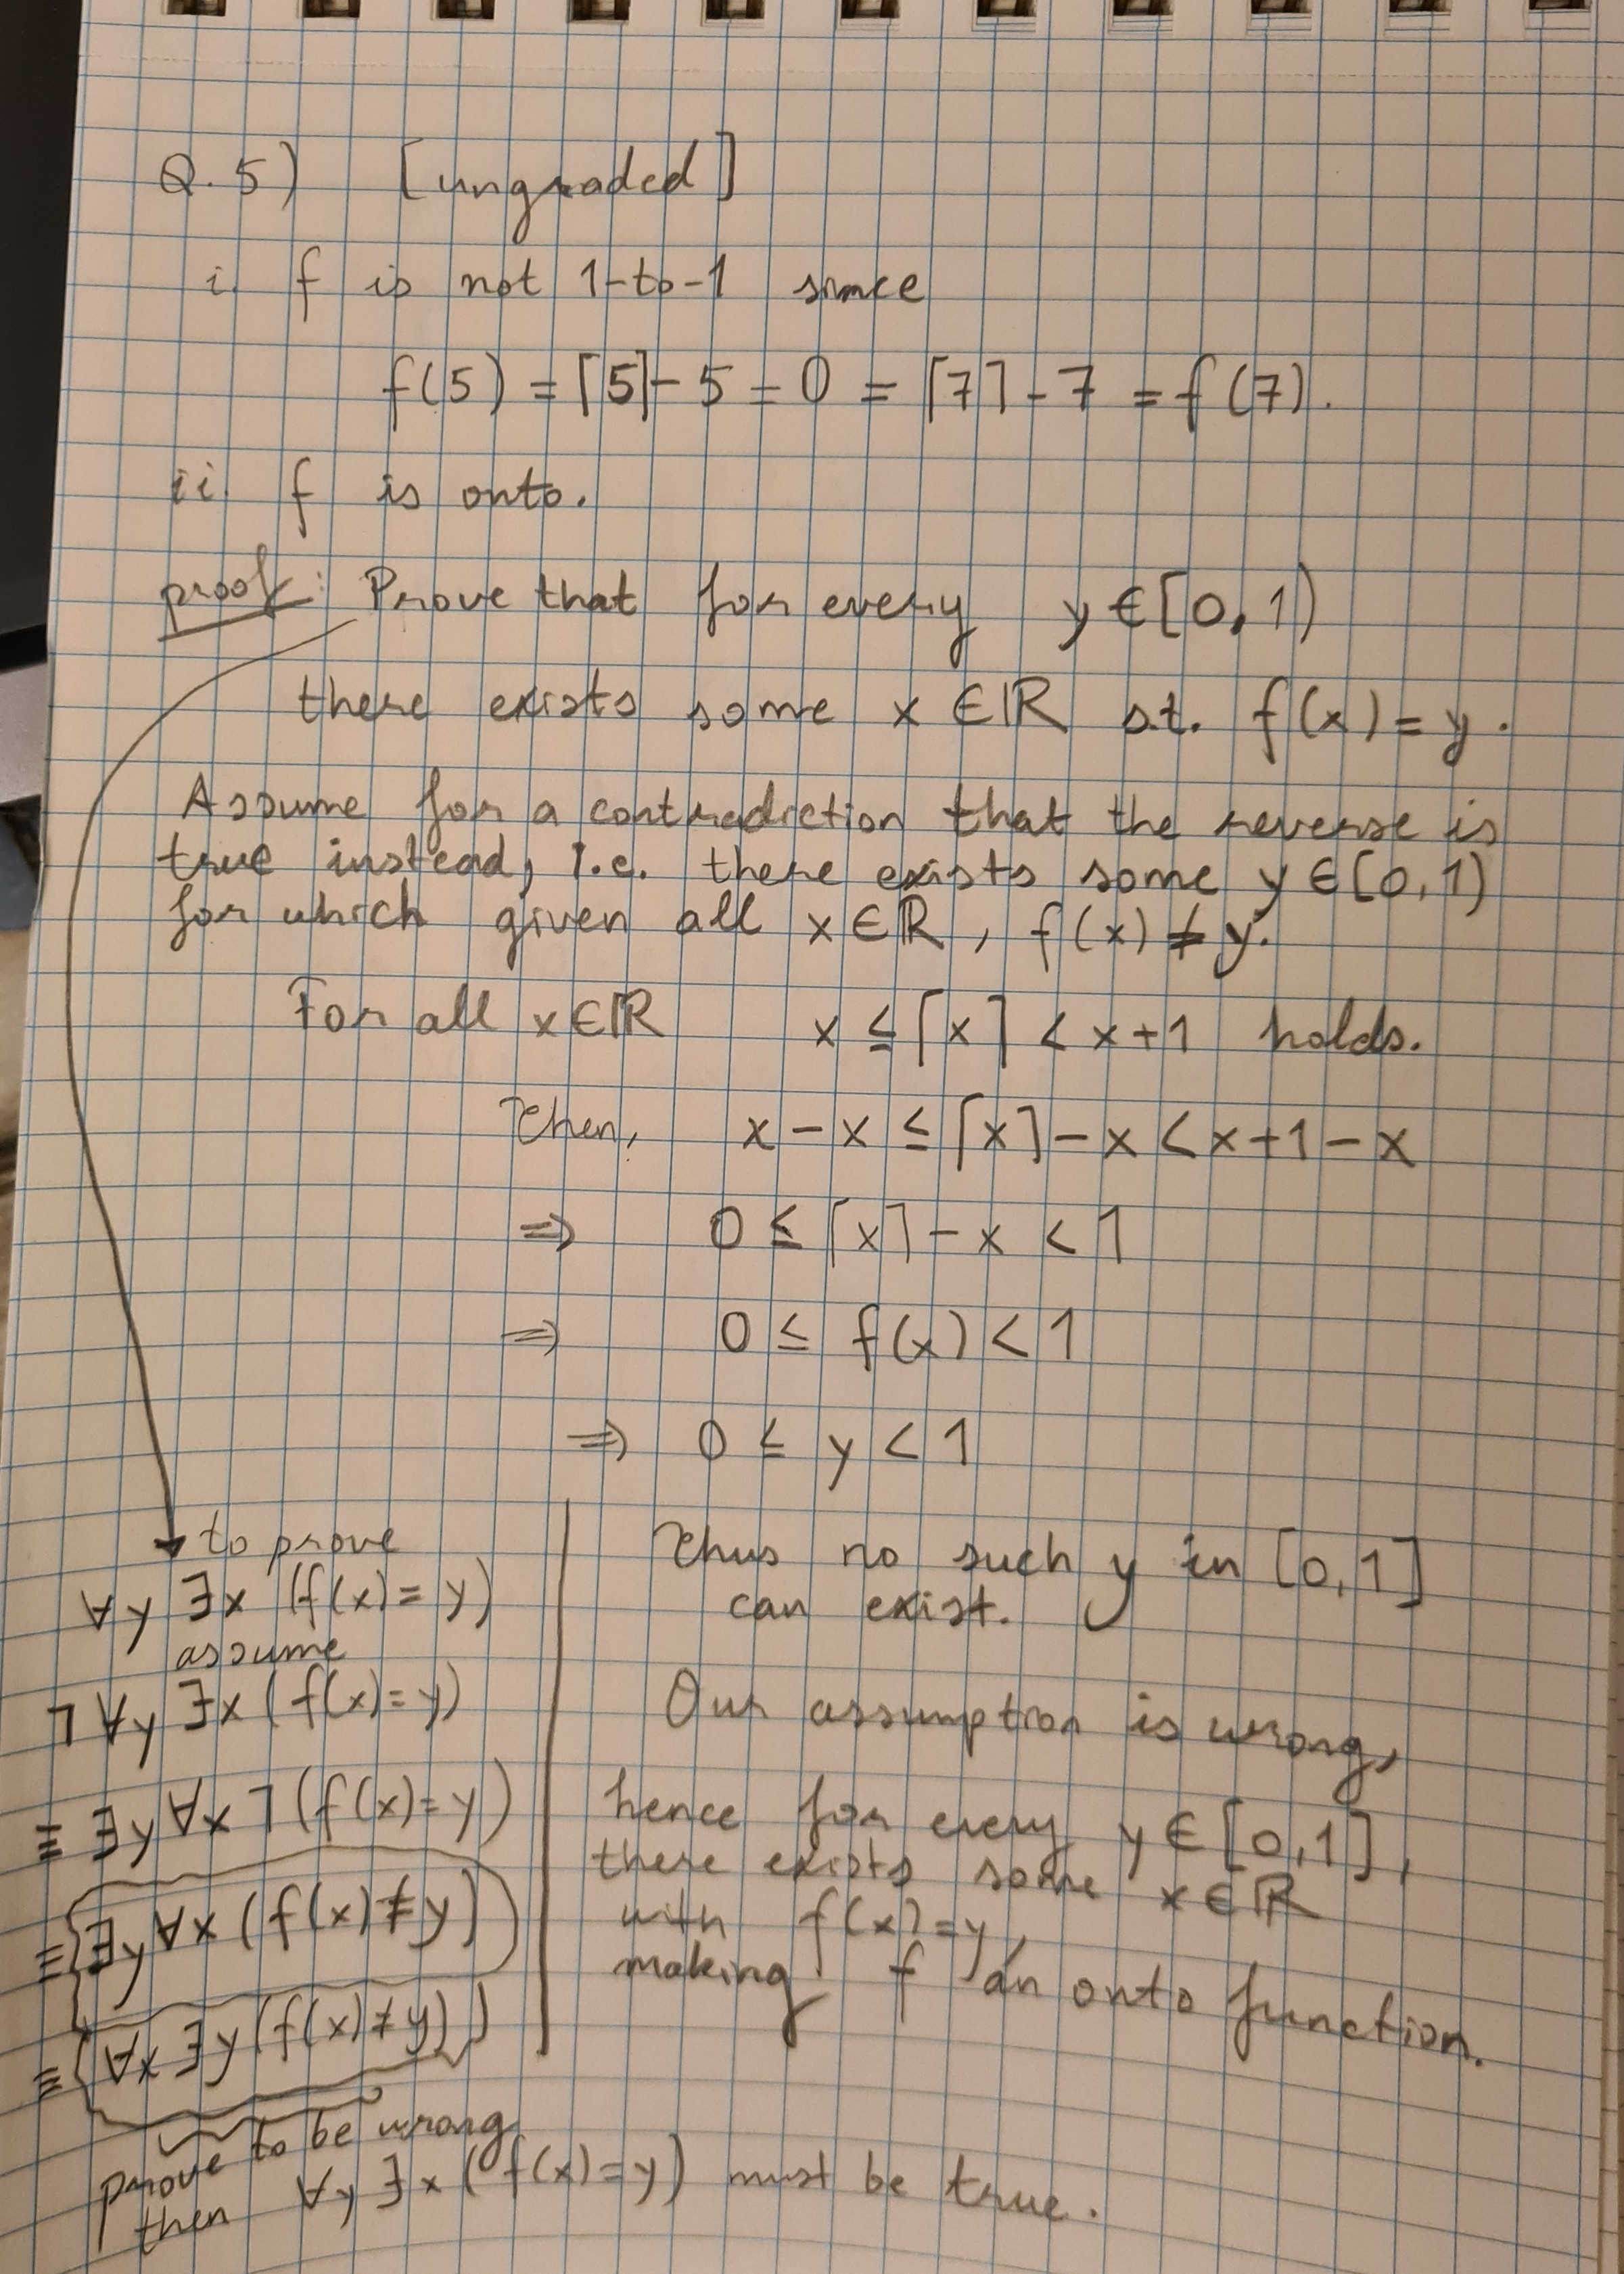 Q.5) [ungraded]
i. f is not 1-to-1 since
f(5) = ⌈5⌉ - 5 = 0 = ⌈7⌉ - 7 = f(7).
ii. f is onto.
proof: Prove that for every y ∈ [0, 1)
there exists some x ∈ ℝ s.t. f(x) = y.
Assume for a contradiction that the reverse is
true instead, i.e. there exists some y ∈ [0, 1)
for which given all x ∈ ℝ, f(x) ≠ y.
For all x ∈ ℝ x ≤ ⌈x⌉ < x+1 holds.
Then, x - x ≤ ⌈x⌉ - x < x+1 - x
⇒ 0 ≤ ⌈x⌉ - x < 1
⇒ 0 ≤ f(x) < 1
⇒ 0 ≤ y < 1
to prove
∀y ∃x (f(x) = y)
assume
¬∀y ∃x (f(x) = y)
≡ ∃y ∀x ¬(f(x) = y)
≡ ∃y ∀x (f(x) ≠ y)
≡ ∀x ∃y (f(x) ≠ y)
prove to be wrong
then ∀y ∃x (f(x) = y) must be true.
Thus no such y in [0, 1]
can exist.
Our assumption is wrong,
hence for every y ∈ [0, 1],
there exists some x ∈ ℝ
with f(x) = y,
making f an onto function.